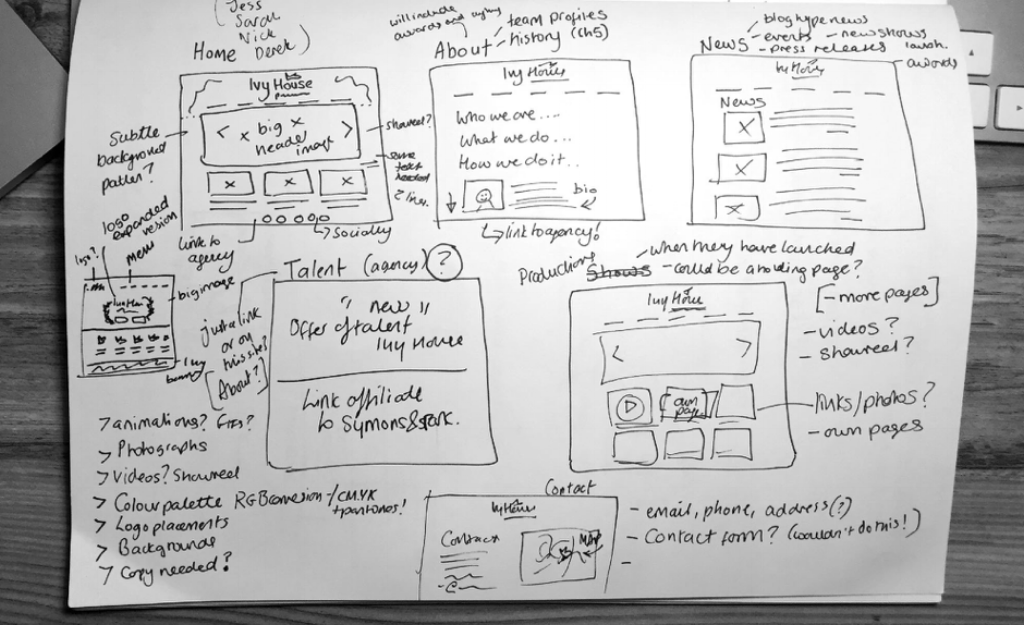 Jess
Sarah
Nick
Derek
Home
Ivy House
big
header
image
Subtle
background
pattern?
showreel?
some
text
needed
link to
agency
socially
will include
awards and
About
team profiles
history (chs)
Ivy House
Who we are....
What we do...
How we do it..
bio
link to agency!
News
blog type news
events
new shows
launch.
press releases
awards
Ivy House
News
logo?
logo
expanded
version
menu
Ivy House
big image
Talent (agency) ?
just a link
or on
this site?
[About?]
" new "
Offer of talent
Ivy House
Link affiliate
to Symons &
Productions
Shows
- when they have launched
- could be a holding page?
[- more pages]
Ivy House
own
page
- videos?
- showreel?
links/photos?
- own pages
> animations? GIFs?
> Photographs
> Videos? Showreel
> Colour palette RGB conversion / CMYK
+ pantones!
> Logo placements
> Backgrounds
> Copy needed?
Contact
Ivy House
Contact
Map
- email, phone, address(?)
- Contact form? (wouldn't do this!)
-